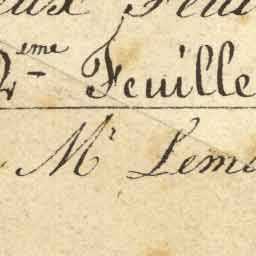 eux Feui
2eme Feuille
Mr Lem